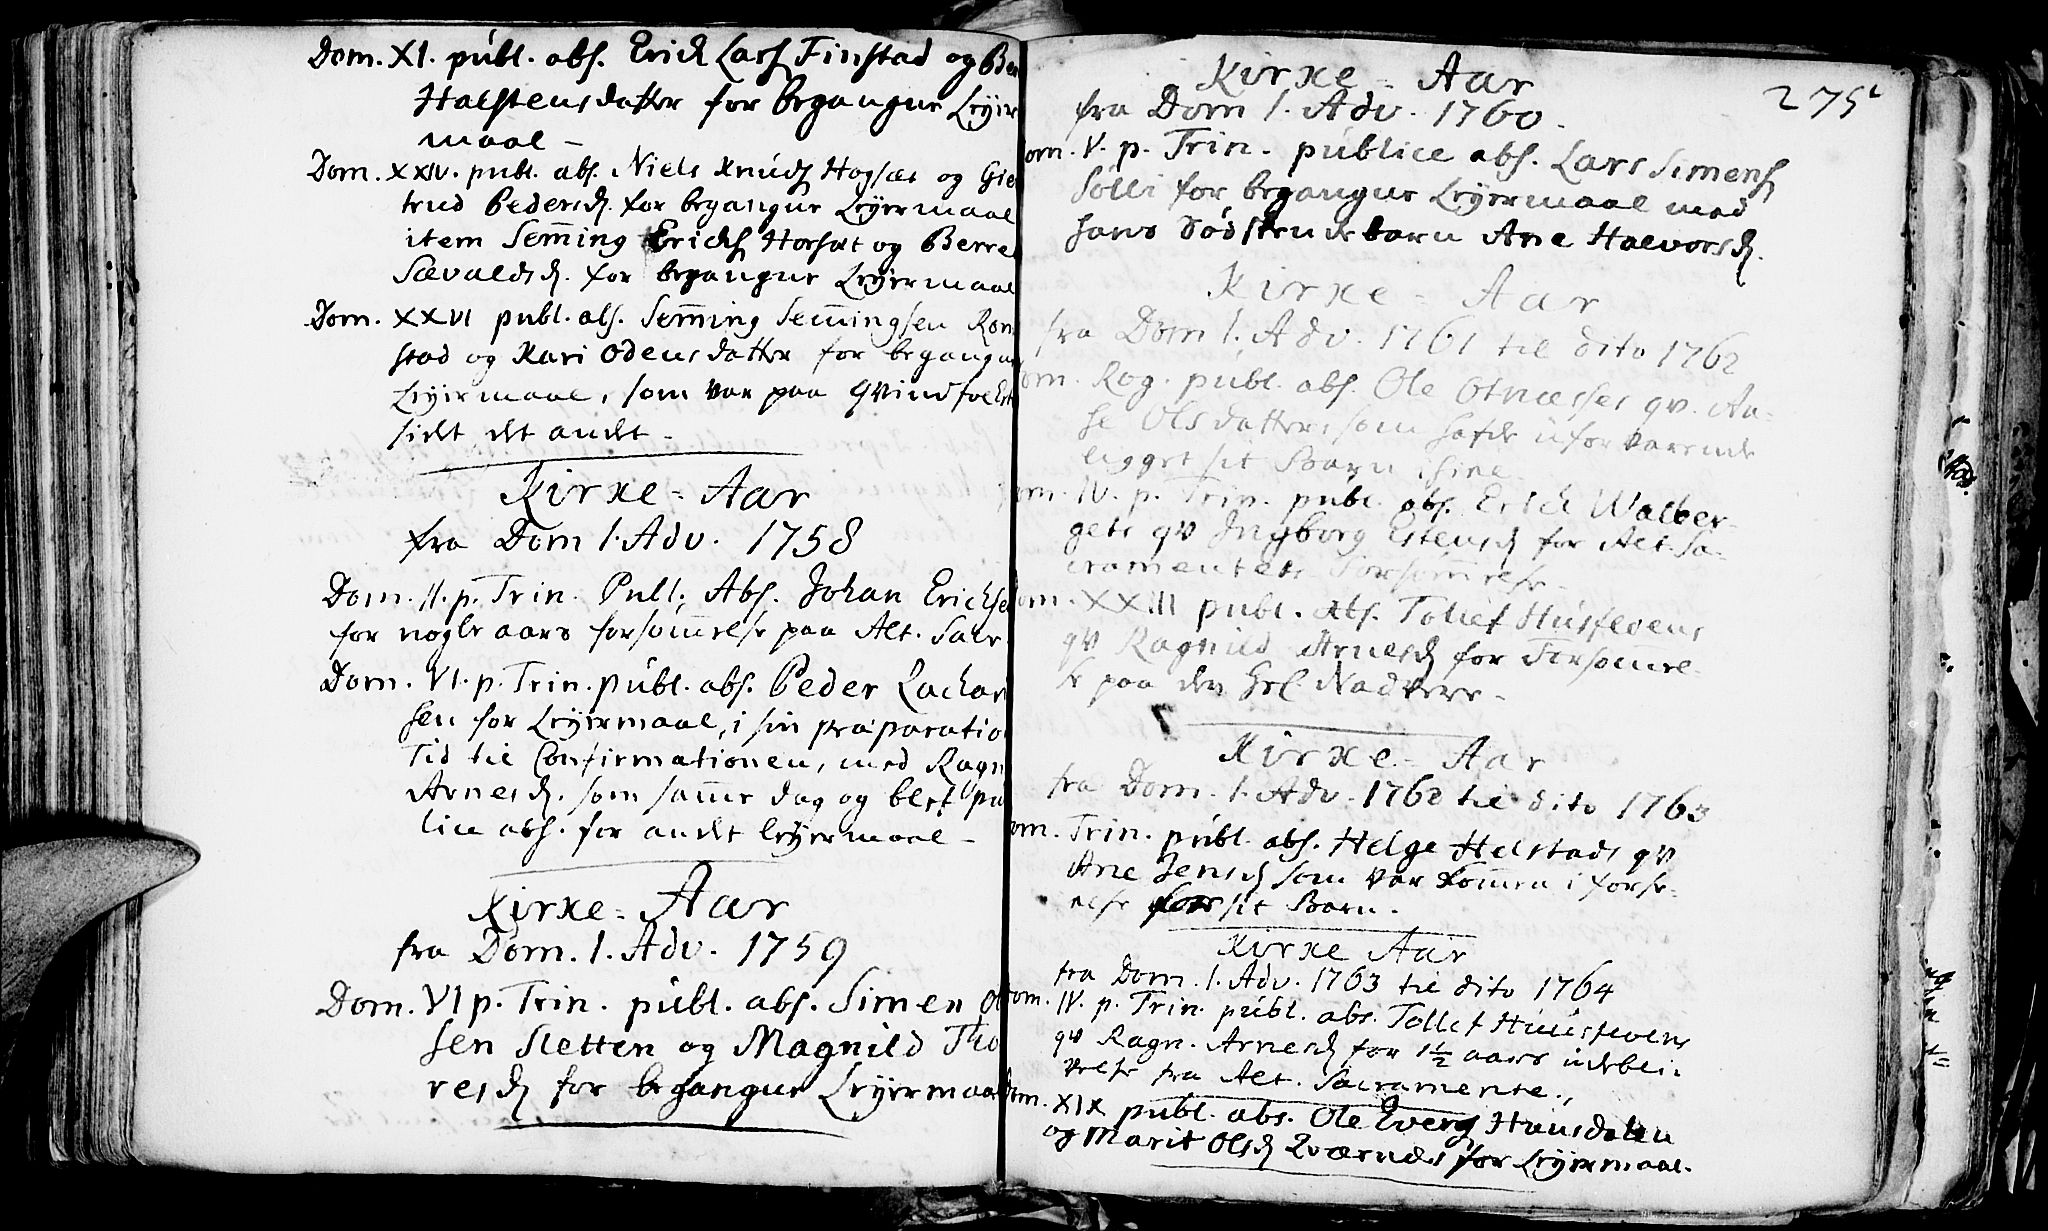 Dom. XI. publ. abs. Erich Lars Finstad og Ber
Halstensdatter for begangne Leyer
maal -
Dom. XXIV. publ. abs. Niels Knuds Hogsæt og Gie
trud Pedersd. for begangne Leyermaal
item Semming Erichs Horsæt og Berre
Sævaldsd. for begangne Leyermaal
Dom. XXVI publ. abs. Semming Semmingsen Ron
stad og Kari Odensdatter for begangne
Leyermaal, som var paa Qvindfolkets
sidet det andet -
Kirke-Aar
fra Dom 1. Adv. 1758
Dom. II. p. Trin. Publ. Abs. Johan Erichse
for nogle aars forsømmelse paa Alt. Sacr
Dom. VI. p. Trin. publ. abs. Peder Zachari
sen for Leyermaal, i sin præparatio
Tid til Confirmationen, med Ragn
Arnesd. som samme dag og blef pu
lice abs. for andet leyermaal -
Kirke-Aar
fra Dom. 1. Adv. 1759
Dom. VI p. Trin. publ. abs. Simen Ol
sen Sletten og Magnild Tho
resd for begangne Leyermaal
275
Kirke-Aar
fra Dom 1. Adv. 1760.
Dom. V. p. Trin. publice abs. Lars Simens
Solli for begangne Leyermaal med
hans Sødskendebarn Ane Halvorsd.
Kirke-Aar
fra Dom 1. Adv. 1761 til dito 1762
Dom. Rog. publ. abs. Ole Otnæsses qv. Aa-
se Olsdatter, som hafde uforvarende
ligget sit Barn ihiæl
Dom. IV. p. Trin. publ. abs. Erich Walber-
gets qv Ingborg Estensd for Alt. Sa-
cramentets Forsømmelse -
Dom. XXIII publ. abs. Tollef Husfloens
qv Ragnild Arnesd for Forsømmel-
se paa den hel. Nadvere -
Kirke-Aar
fra Dom. 1. Adv. 1762 til dito 1763
Dom. Trin. publ. abs. Helge Helstads qv
Ane Jensd som var kommen i forse-
else for sit Barn.
Kirke Aar
fra Dom. 1. Adv. 1763 til dito 1764
Dom. IV. p. Trin. publ. abs. Tollef Huusfloens
qv Ragn. Arnesd for 1½ aars udebli-
velse fra Alt. Sacramente.,
Dom. XIX publ. abs. Ole Evens Hansdalen
og Marit Olsd Qværnæs for Leyermaal.